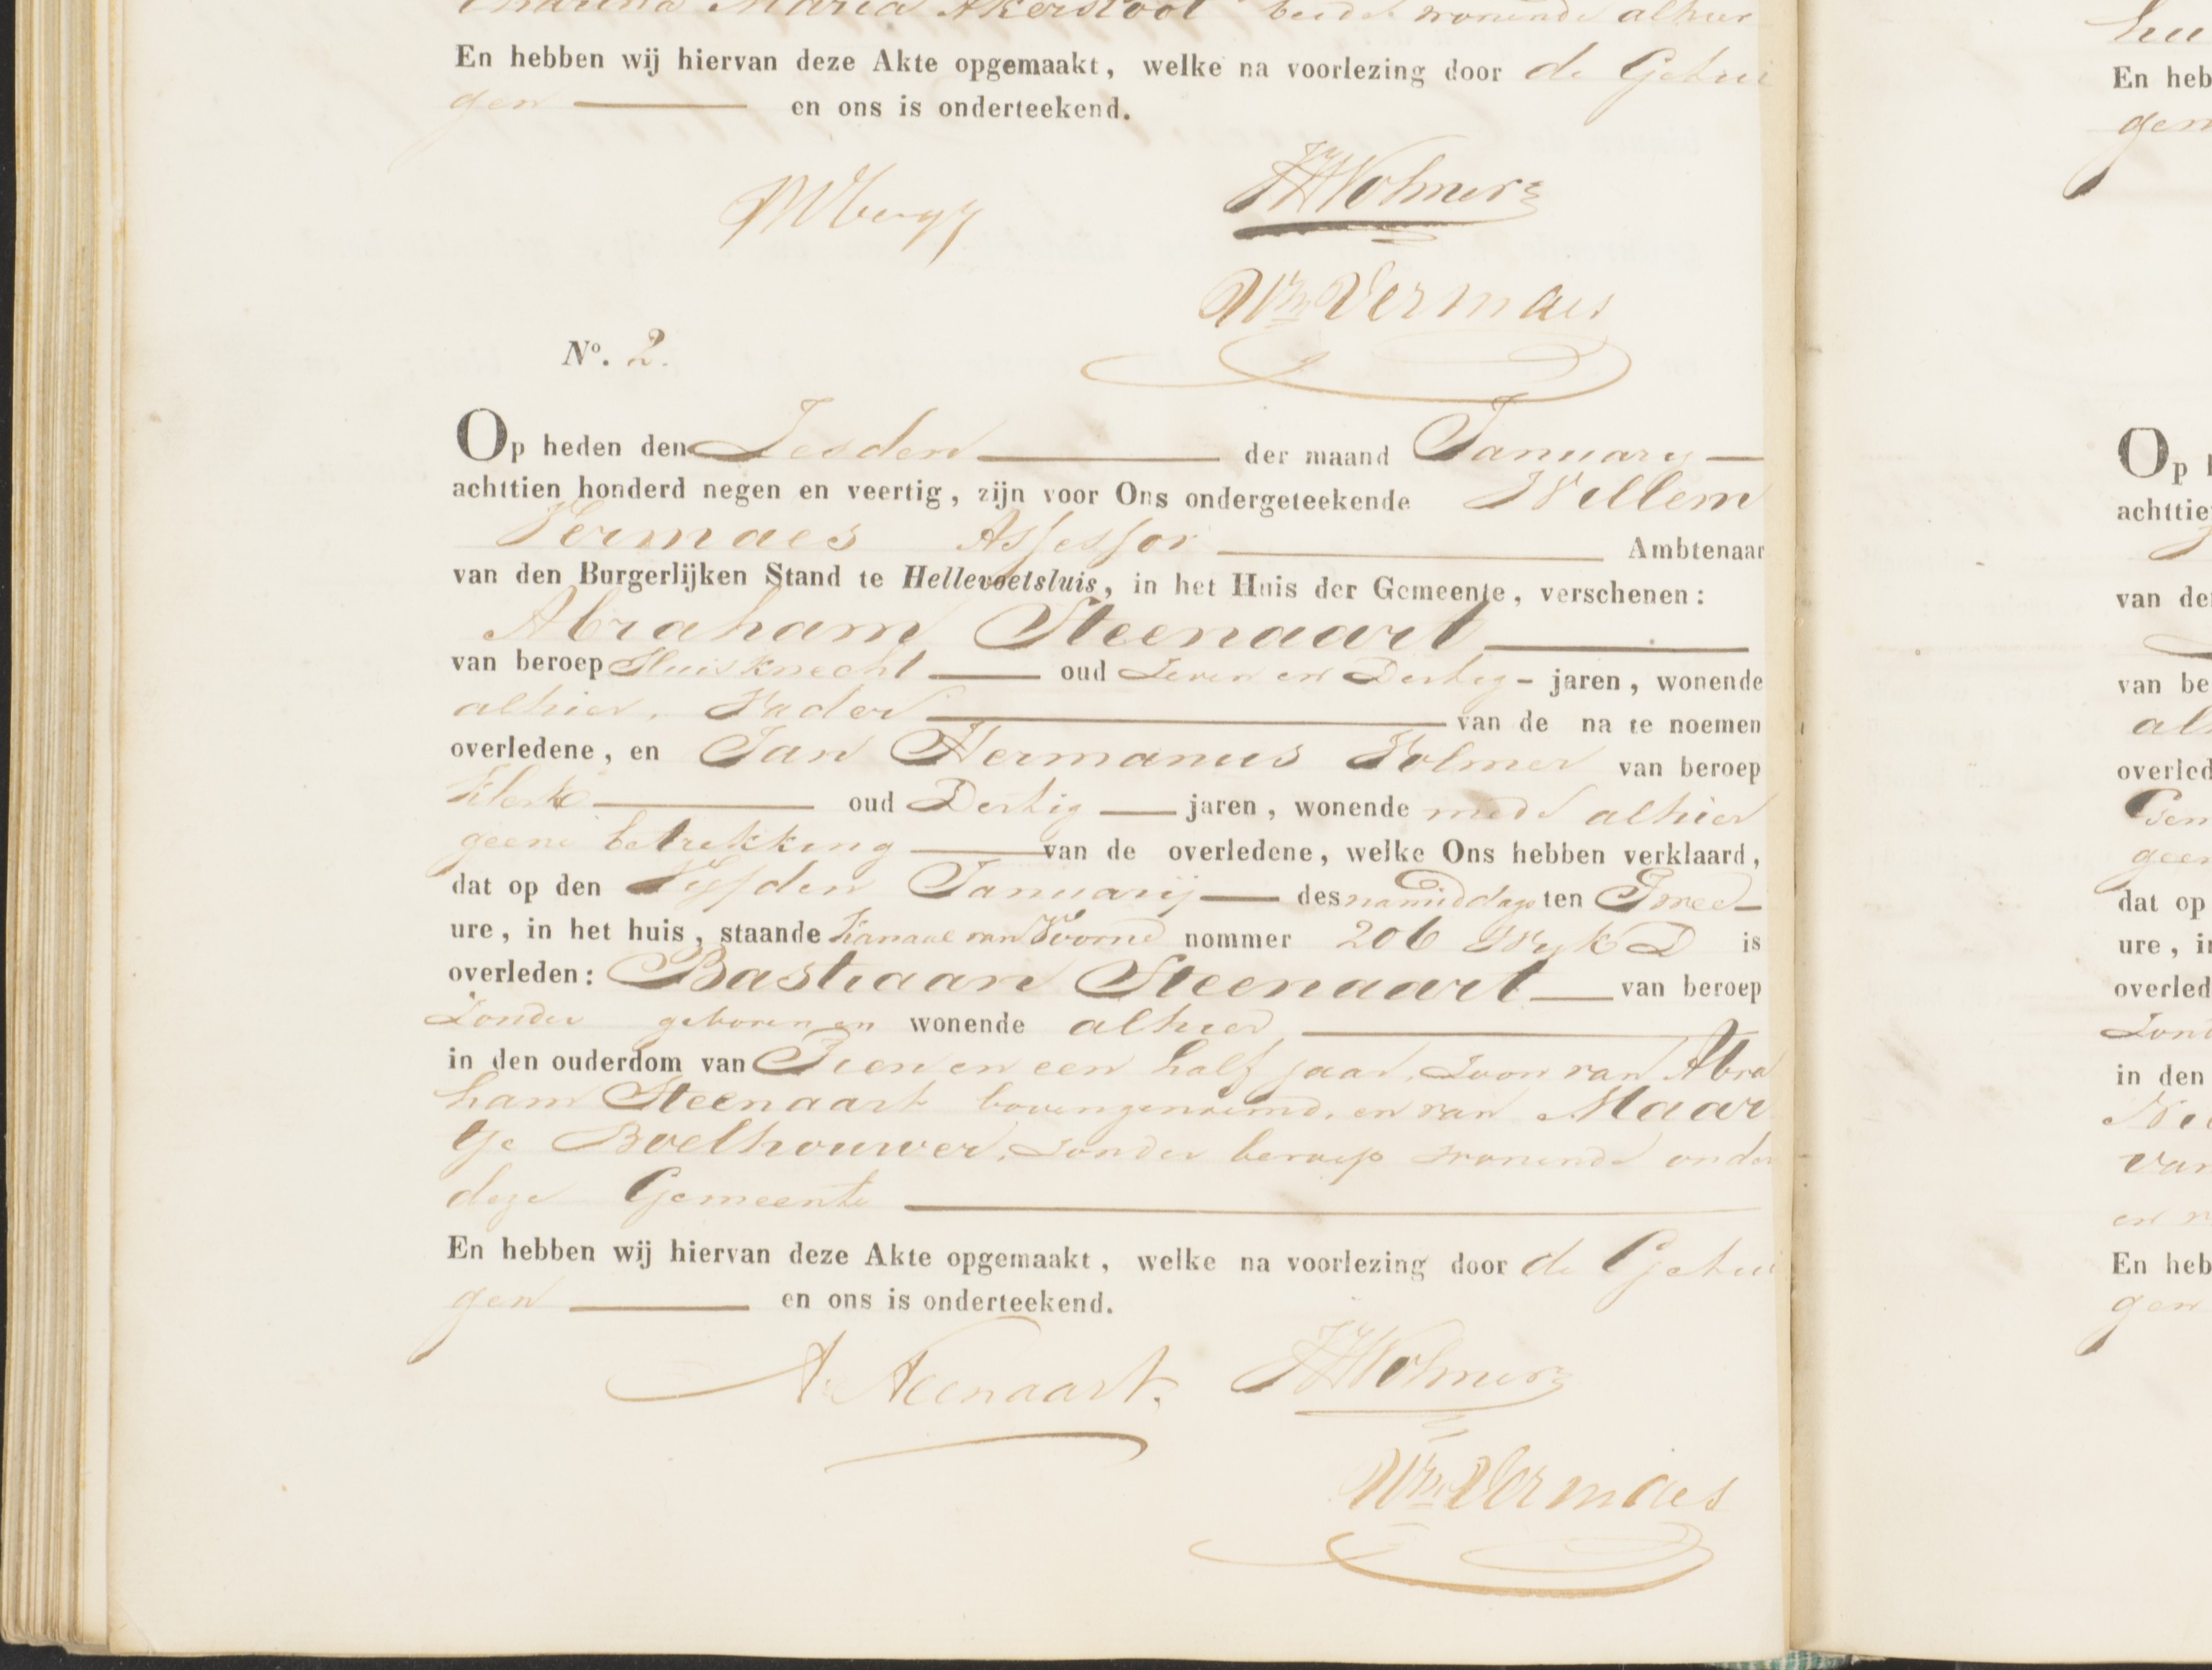 tharina Maria Akersloot beide wonende alhier
En hebben wij hiervan deze Akte opgemaakt, welke na voorlezing door de Getui
gen en ons is onderteekend.
JHVolmer
Wm Vermaes
No. 2.
Op heden den Zesden der maand January
achttien honderd negen en veertig, zijn voor Ons ondergeteekende Willem
Vermaes Assessor Ambtenaar
van den Burgerlijken Stand te Hellevoetsluis, in het Huis der Gemeente, verschenen:
Abraham Steenaart
van beroep Sluisknecht oud Zeven en Dertig jaren, wonende
alhier, Vader van de na te noemen
overledene, en Jan Hermanus Volmer van beroep
Klerk oud Dertig jaren, wonende mede alhier
geene betrekking van de overledene, welke Ons hebben verklaard,
dat op den Vijfden Januarij des namiddags ten Twee
ure, in het huis, staande Kanaal van Voorne nommer 206 Wyk D is
overleden: Bastiaan Steenaart van beroep
Zonder geboren en wonende alhier,
in den ouderdom van Tien en een half jaar, Zoon van Abra
ham Steenaart bovengenoemd, en van Maar
tje Boelhouwer, Zonder beroep wonende onder
deze Gemeente
En hebben wij hiervan deze Akte opgemaakt, welke na voorlezing door de Getui
gen en ons is onderteekend.
A. Steenaart.
JHVolmer
Wm Vermaes
En heb
gen
Op h
achttie
van de
van be
al
overled
geen
dat op
ure, in
overled
Zond
in den
van
En heb
gen